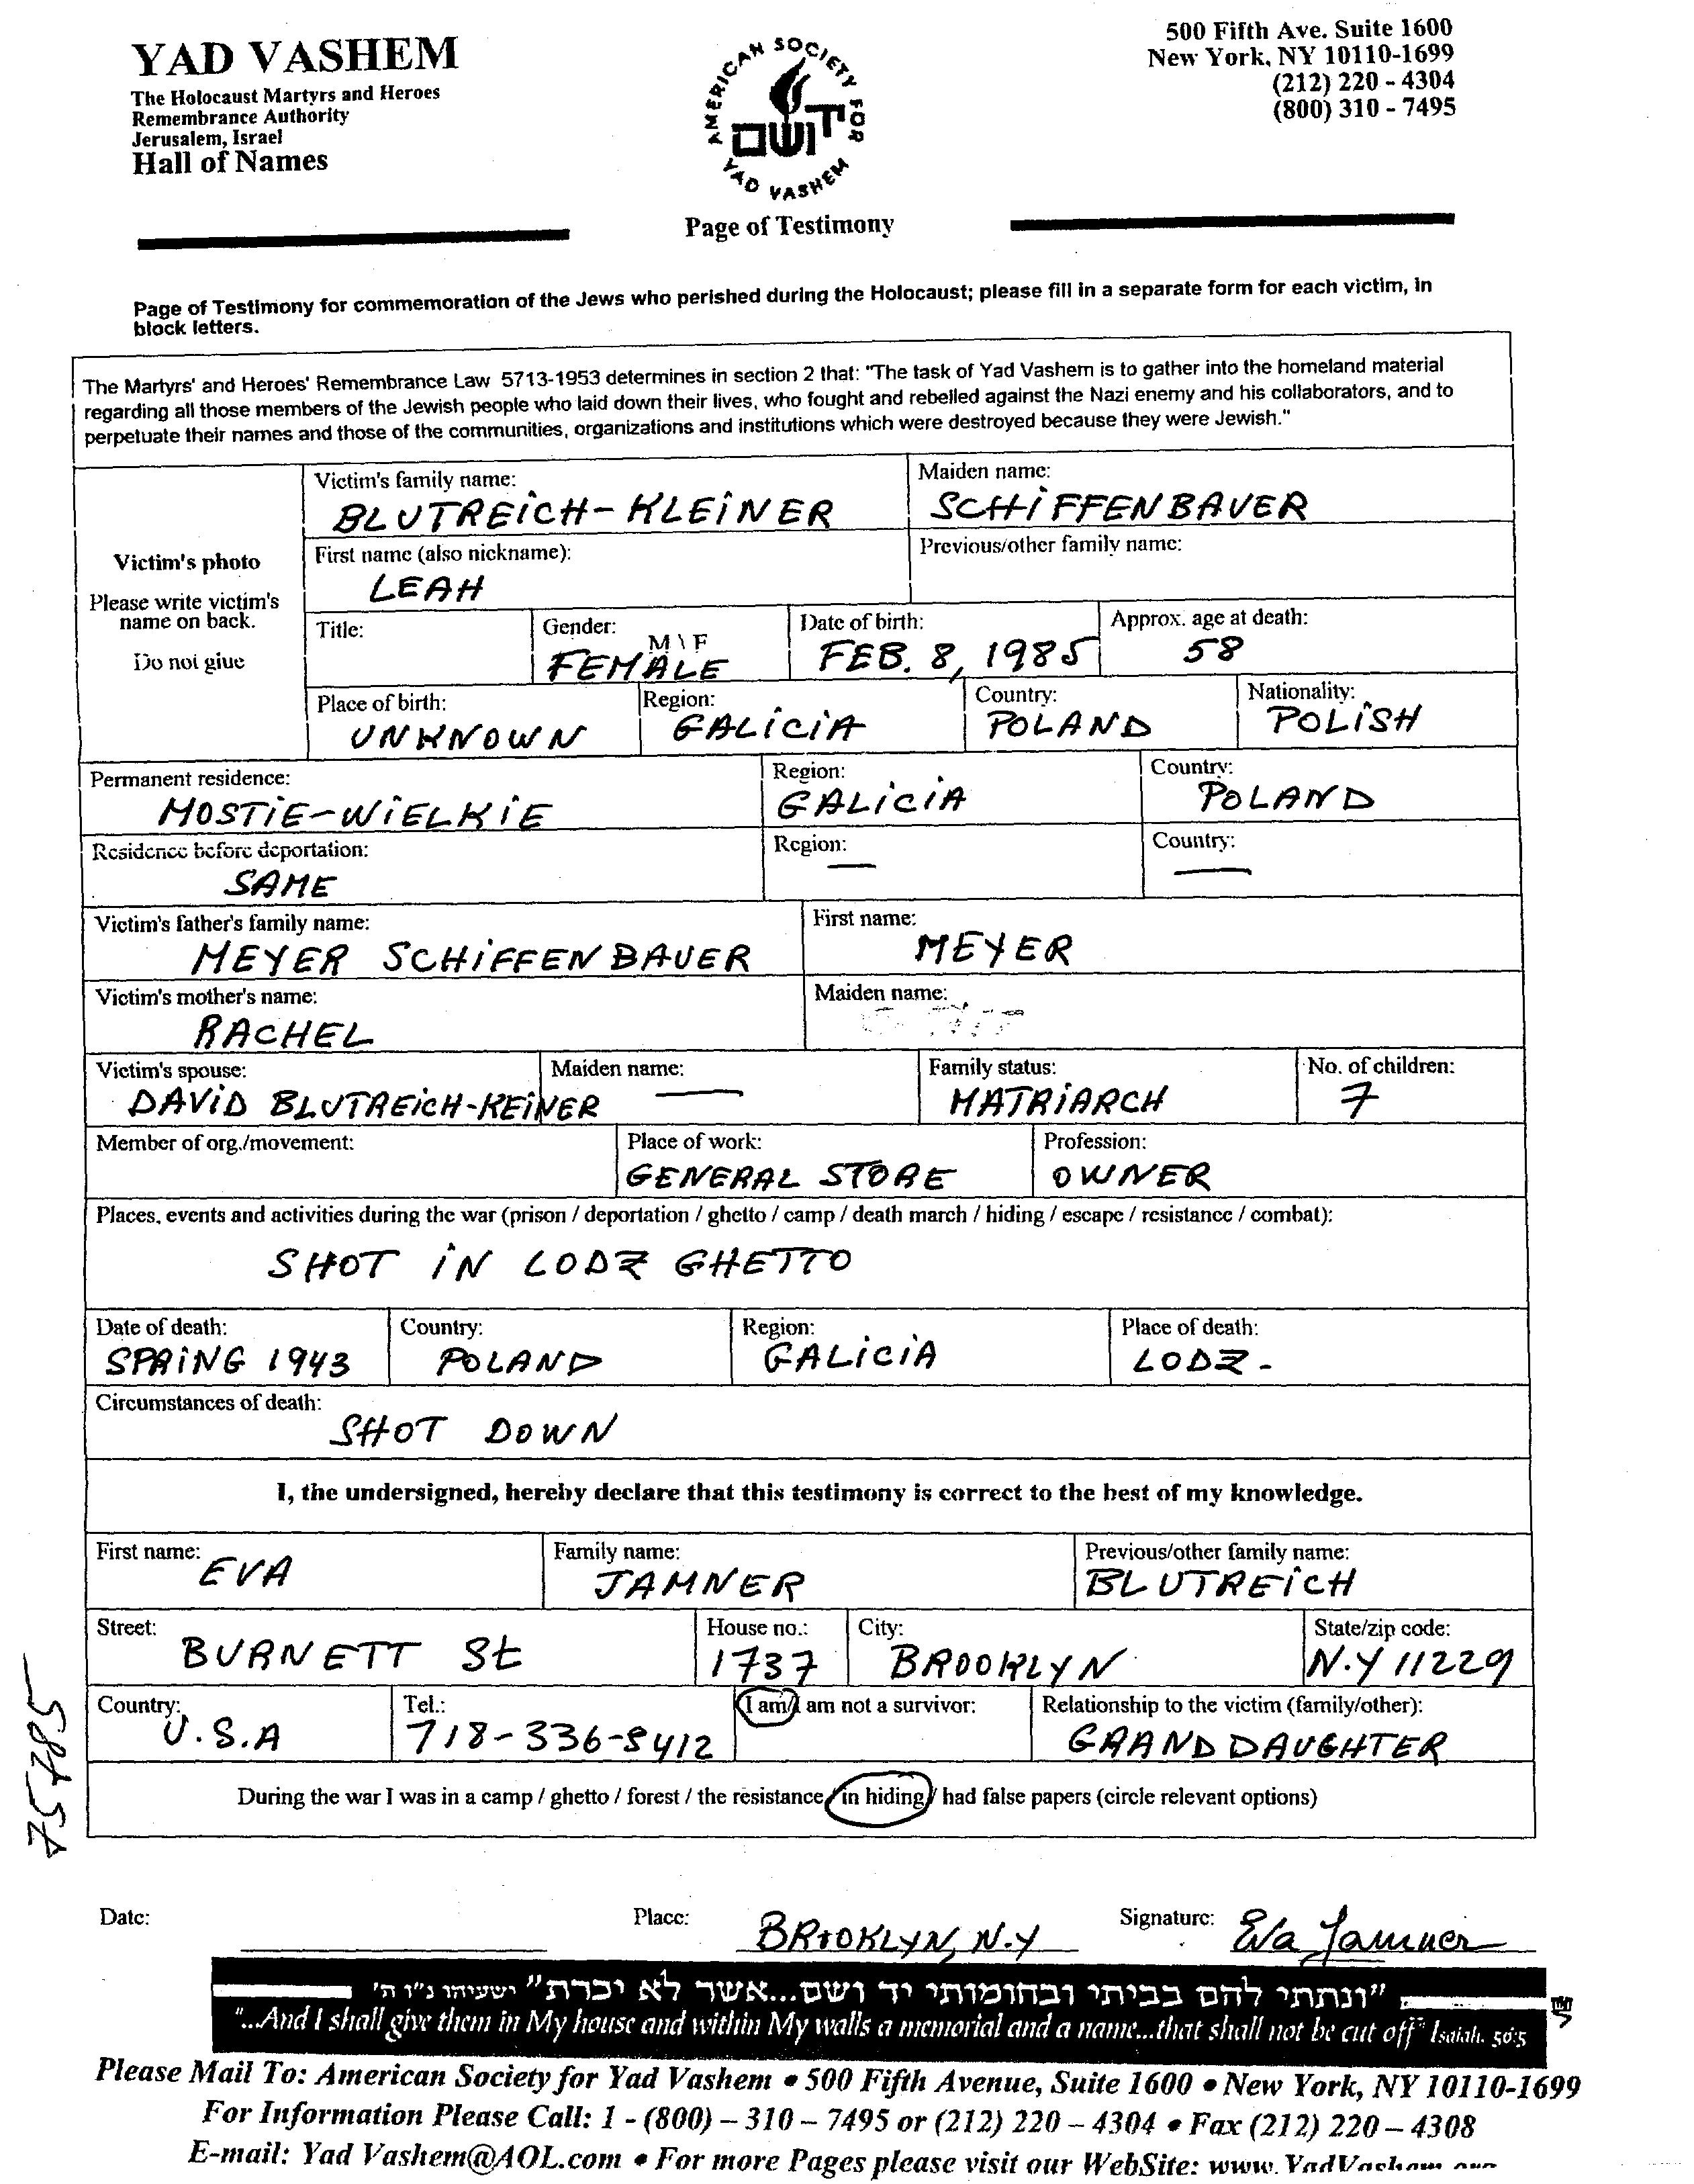 YAD VASHEM
The Holocaust Martyrs and Heroes
Remembrance Authority
Jerusalem, Israel
Hall of Names
AMERICAN SOCIETY FOR
יד ושם
YAD VASHEM
Page of Testimony
500 Fifth Ave. Suite 1600
New York, NY 10110-1699
(212) 220 - 4304
(800) 310 - 7495
Page of Testimony for commemoration of the Jews who perished during the Holocaust; please fill in a separate form for each victim, in
block letters.
The Martyrs' and Heroes' Remembrance Law 5713-1953 determines in section 2 that: "The task of Yad Vashem is to gather into the homeland material
regarding all those members of the Jewish people who laid down their lives, who fought and rebelled against the Nazi enemy and his collaborators, and to
perpetuate their names and those of the communities, organizations and institutions which were destroyed because they were Jewish."
Victim's photo
Please write victim's
name on back.
Do not glue
Victim's family name:
BLUTREICH-KLEINER
Maiden name:
SCHIFFENBAUER
First name (also nickname):
LEAH
Previous/other family name:
Title:
Gender: M \ F
FEMALE
Date of birth:
FEB. 8, 1985
Approx. age at death:
58
Place of birth:
UNKNOWN
Region:
GALICIA
Country:
POLAND
Nationality:
POLISH
Permanent residence:
MOSTIE-WIELKIE
Region:
GALICIA
Country:
POLAND
Residence before deportation:
SAME
Region:
—
Country:
—
Victim's father's family name:
MEYER SCHIFFENBAUER
First name:
MEYER
Victim's mother's name:
RACHEL
Maiden name:
Victim's spouse:
DAVID BLUTREICH-KEINER
Maiden name:
—
Family status:
MATRIARCH
No. of children:
7
Member of org./movement:
Place of work:
GENERAL STORE
Profession:
OWNER
Places, events and activities during the war (prison / deportation / ghetto / camp / death march / hiding / escape / resistance / combat):
SHOT IN LODZ GHETTO
Date of death:
SPRING 1943
Country:
POLAND
Region:
GALICIA
Place of death:
LODZ -
Circumstances of death:
SHOT DOWN
I, the undersigned, hereby declare that this testimony is correct to the best of my knowledge.
First name:
EVA
Family name:
JAMNER
Previous/other family name:
BLUTREICH
Street:
BURNETT St
House no.:
1737
City:
BROOKLYN
State/zip code:
N.Y 11229
Country:
U.S.A
Tel.:
718-336-8412
I am/I am not a survivor:
Relationship to the victim (family/other):
GRANDDAUGHTER
During the war I was in a camp / ghetto / forest / the resistance / in hiding / had false papers (circle relevant options)
75785
Date:
Place: BROOKLYN, N.Y
Signature: Eva Jamner
"ונתתי להם בביתי ובחומותי יד ושם...אשר לא יכרת" ישעיהו נ"ו ה'
"...And I shall give them in My house and within My walls a memorial and a name...that shall not be cut off" Isaiah. 56:5
Please Mail To: American Society for Yad Vashem • 500 Fifth Avenue, Suite 1600 • New York, NY 10110-1699
For Information Please Call: 1 - (800) – 310 – 7495 or (212) 220 – 4304 • Fax (212) 220 – 4308
E-mail: Yad Vashem@AOL.com • For more Pages please visit our WebSite: www. YadVashem.org